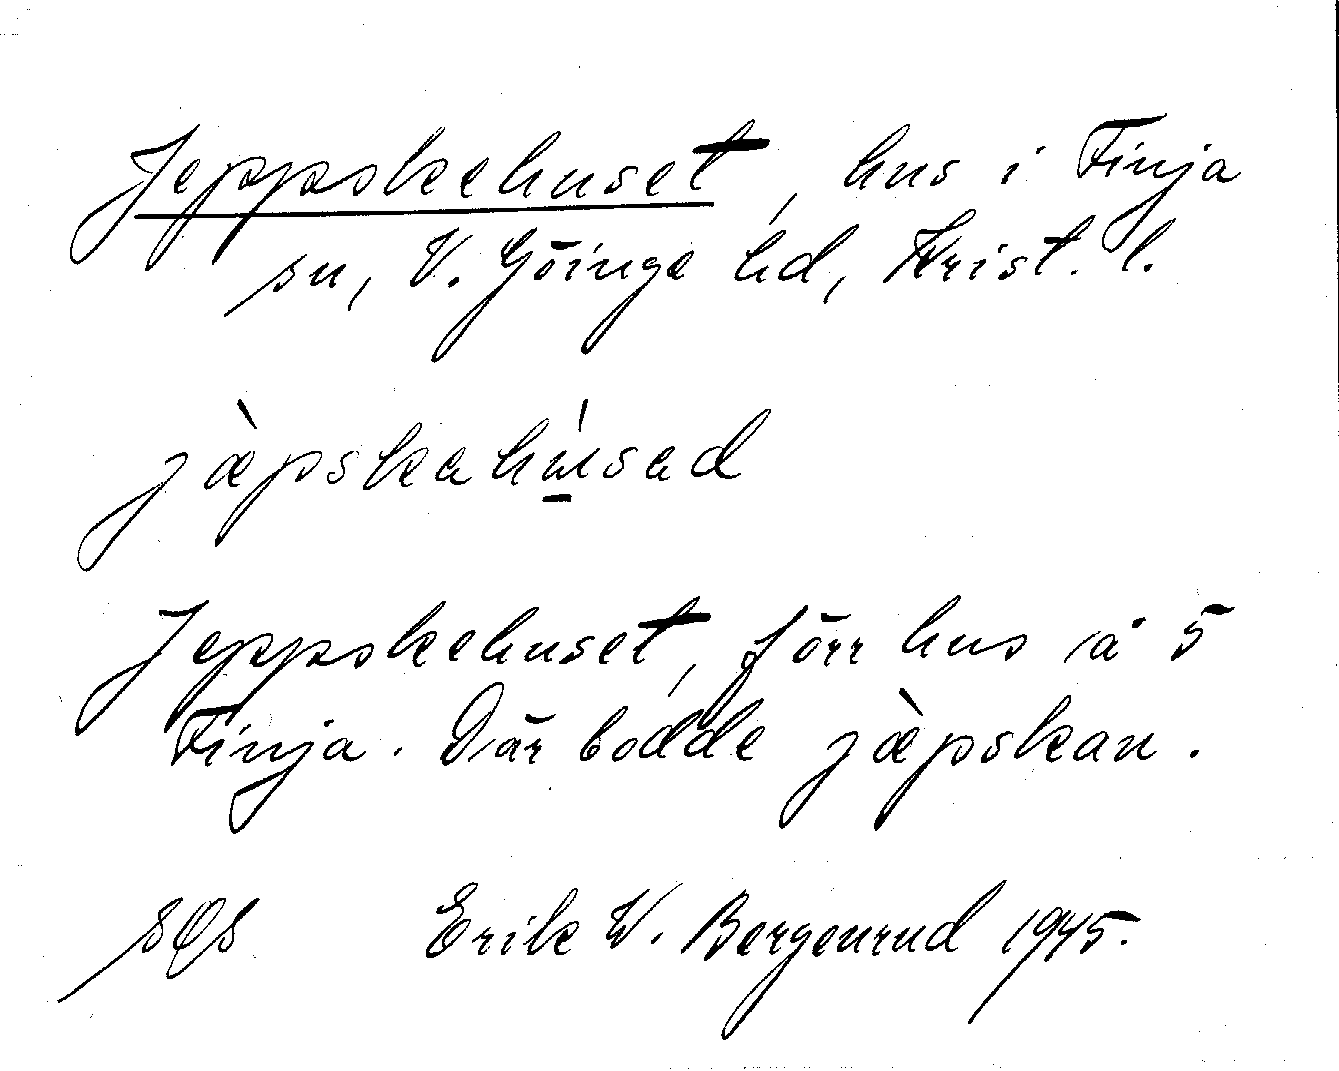 Jeppskehuset, hus i Finja
sn, V. Göinge hd, Krist. l.
jæ̀pskahú̠sad
Jeppskehuset, förr hus å 5
Finja. Där bodde jæ̀pskan.
Erik W. Bergenrud 1945.